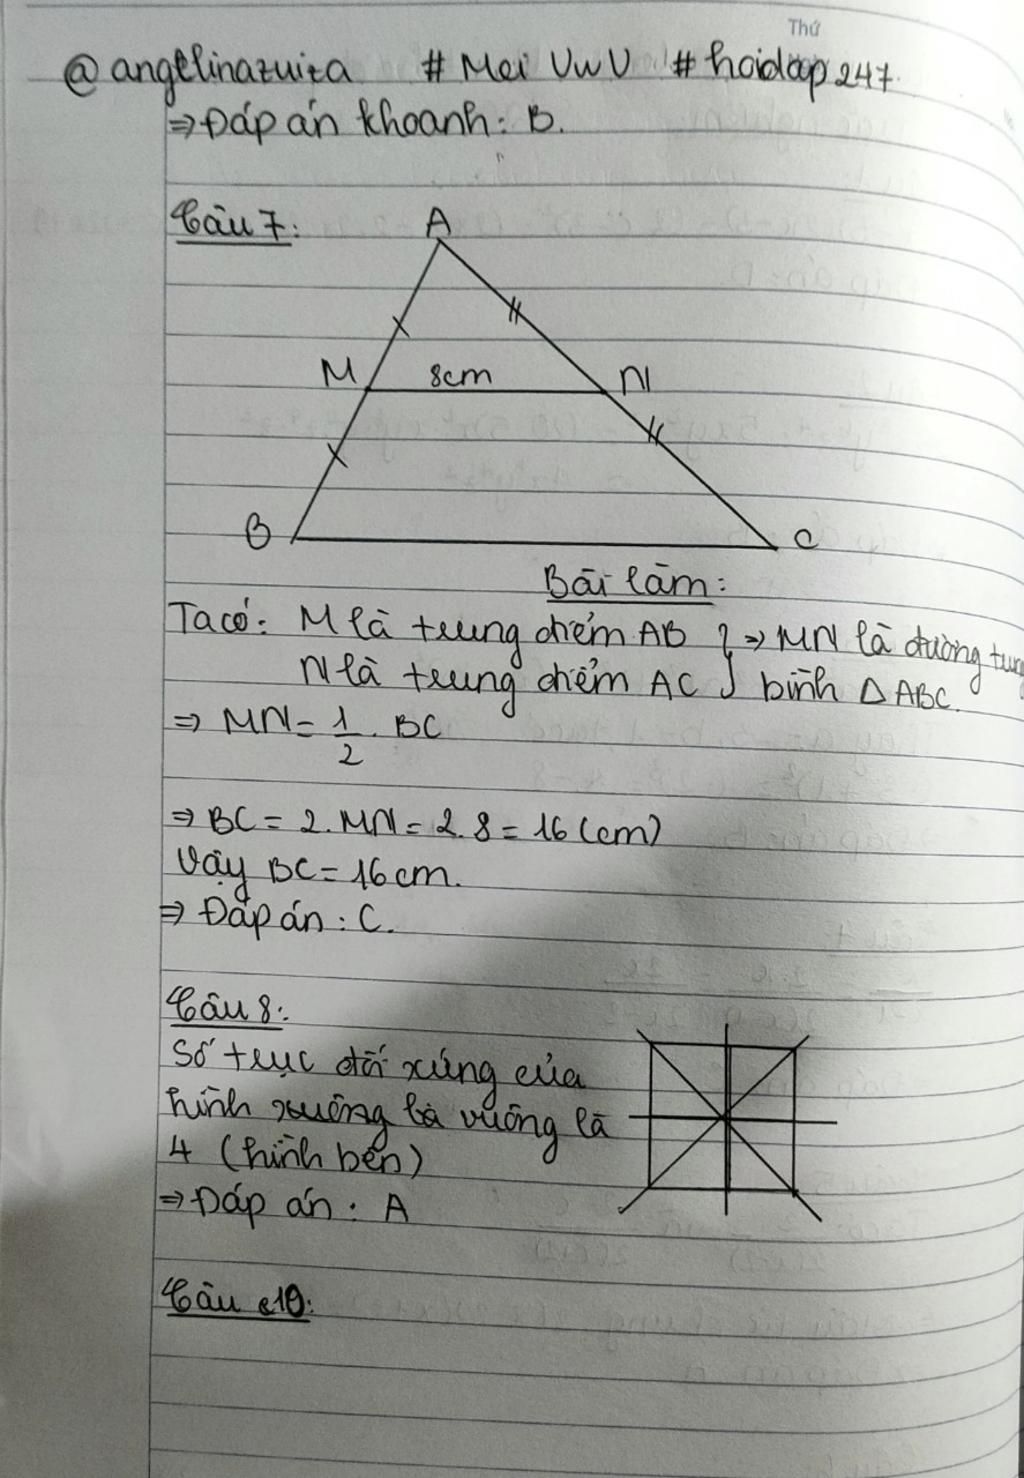 Thứ
@angelinazuiza # Mei UwU # hoidap247
⇒ Đáp án khoanh: B.
Câu 7:
A
M 8cm N
B C
Bài làm:
Ta có: M là trung điểm AB } ⇒ MN là đường trung
N là trung điểm AC } bình Δ ABC.
⇒ MN = 1/2 . BC
⇒ BC = 2. MN = 2. 8 = 16 (cm)
Vậy BC = 16cm.
⇒ Đáp án : C.
Câu 8:
Số trục đối xứng của
hình vuông là
4 (hình bên)
⇒ Đáp án : A
Câu 10: